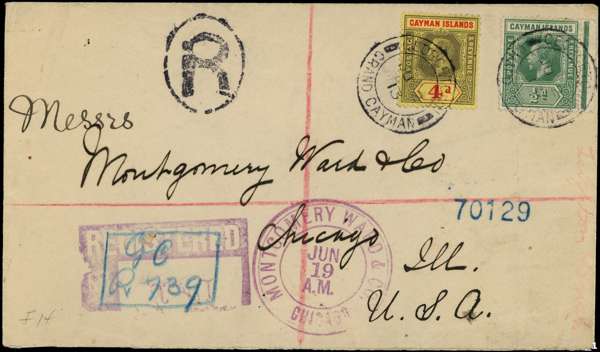 R
CAYMAN ISLANDS
POSTAGE & REVENUE
4d
CAYMAN ISLANDS
POSTAGE & REVENUE
½d
GRAND CAYMAN
Messrs
Montgomery Ward & Co
70129
Chicago
Ill.
U.S.A.
REGISTERED
GC
R 739
MONTGOMERY WARD & CO.
JUN
19
A.M.
CHICAGO